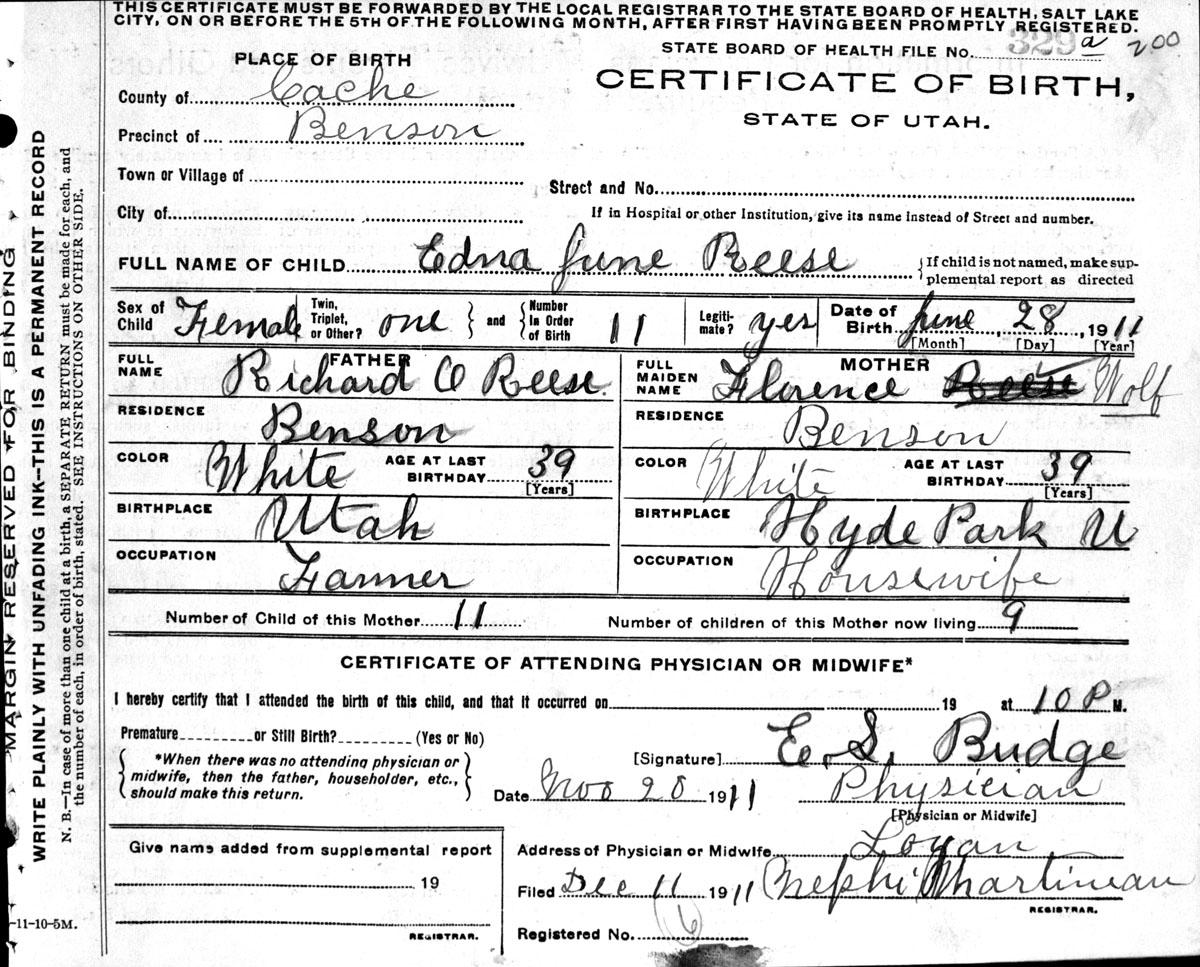 THIS CERTIFICATE MUST BE FORWARDED BY THE LOCAL REGISTRAR TO THE STATE BOARD OF HEALTH, SALT LAKE
CITY, ON OR BEFORE THE 5TH OF THE FOLLOWING MONTH, AFTER FIRST HAVING BEEN PROMPTLY REGISTERED.
STATE BOARD OF HEALTH FILE No. 329 a 200
PLACE OF BIRTH
CERTIFICATE OF BIRTH,
STATE OF UTAH.
County of Cache
Precinct of Benson
Town or Village of
Street and No.
City of
If in Hospital or other Institution, give its name instead of Street and number.
FULL NAME OF CHILD Edna June Reese
{If child is not named, make sup-
plemental report as directed
Sex of Child Female
Twin, Triplet, or Other? one } and { Number In Order of Birth 11
Legiti-mate? yes
Date of Birth June 28, 1911
[Month] [Day] [Year]
FATHER
FULL NAME Richard O Reese.
RESIDENCE Benson
COLOR White AGE AT LAST BIRTHDAY 39
[Years]
BIRTHPLACE Utah
OCCUPATION Farmer
MOTHER
FULL MAIDEN NAME Florence Reese Wolf
RESIDENCE Benson
COLOR White AGE AT LAST BIRTHDAY 39
[Years]
BIRTHPLACE Hyde Park U
OCCUPATION Housewife
Number of Child of this Mother 11
Number of children of this Mother now living 9
CERTIFICATE OF ATTENDING PHYSICIAN OR MIDWIFE*
I hereby certify that I attended the birth of this child, and that it occurred on 19 at 10 P M.
Premature or Still Birth? (Yes or No)
{ *When there was no attending physician or
midwife, then the father, householder, etc.,
should make this return. }
[Signature] E. S. Budge
Date Nov 28 1911 Physician
[Physician or Midwife]
Give name added from supplemental report
19
REGISTRAR.
Address of Physician or Midwife Logan
Filed Dec 11 1911 Nephi Martineau
REGISTRAR.
Registered No. 6
MARGIN RESERVED FOR BINDING
WRITE PLAINLY WITH UNFADING INK—THIS IS A PERMANENT RECORD
N. B.—In case of more than one child at a birth, a SEPARATE RETURN must be made for each, and
the number of each, in order of birth, stated. SEE INSTRUCTIONS ON OTHER SIDE.
-11-10-5M.